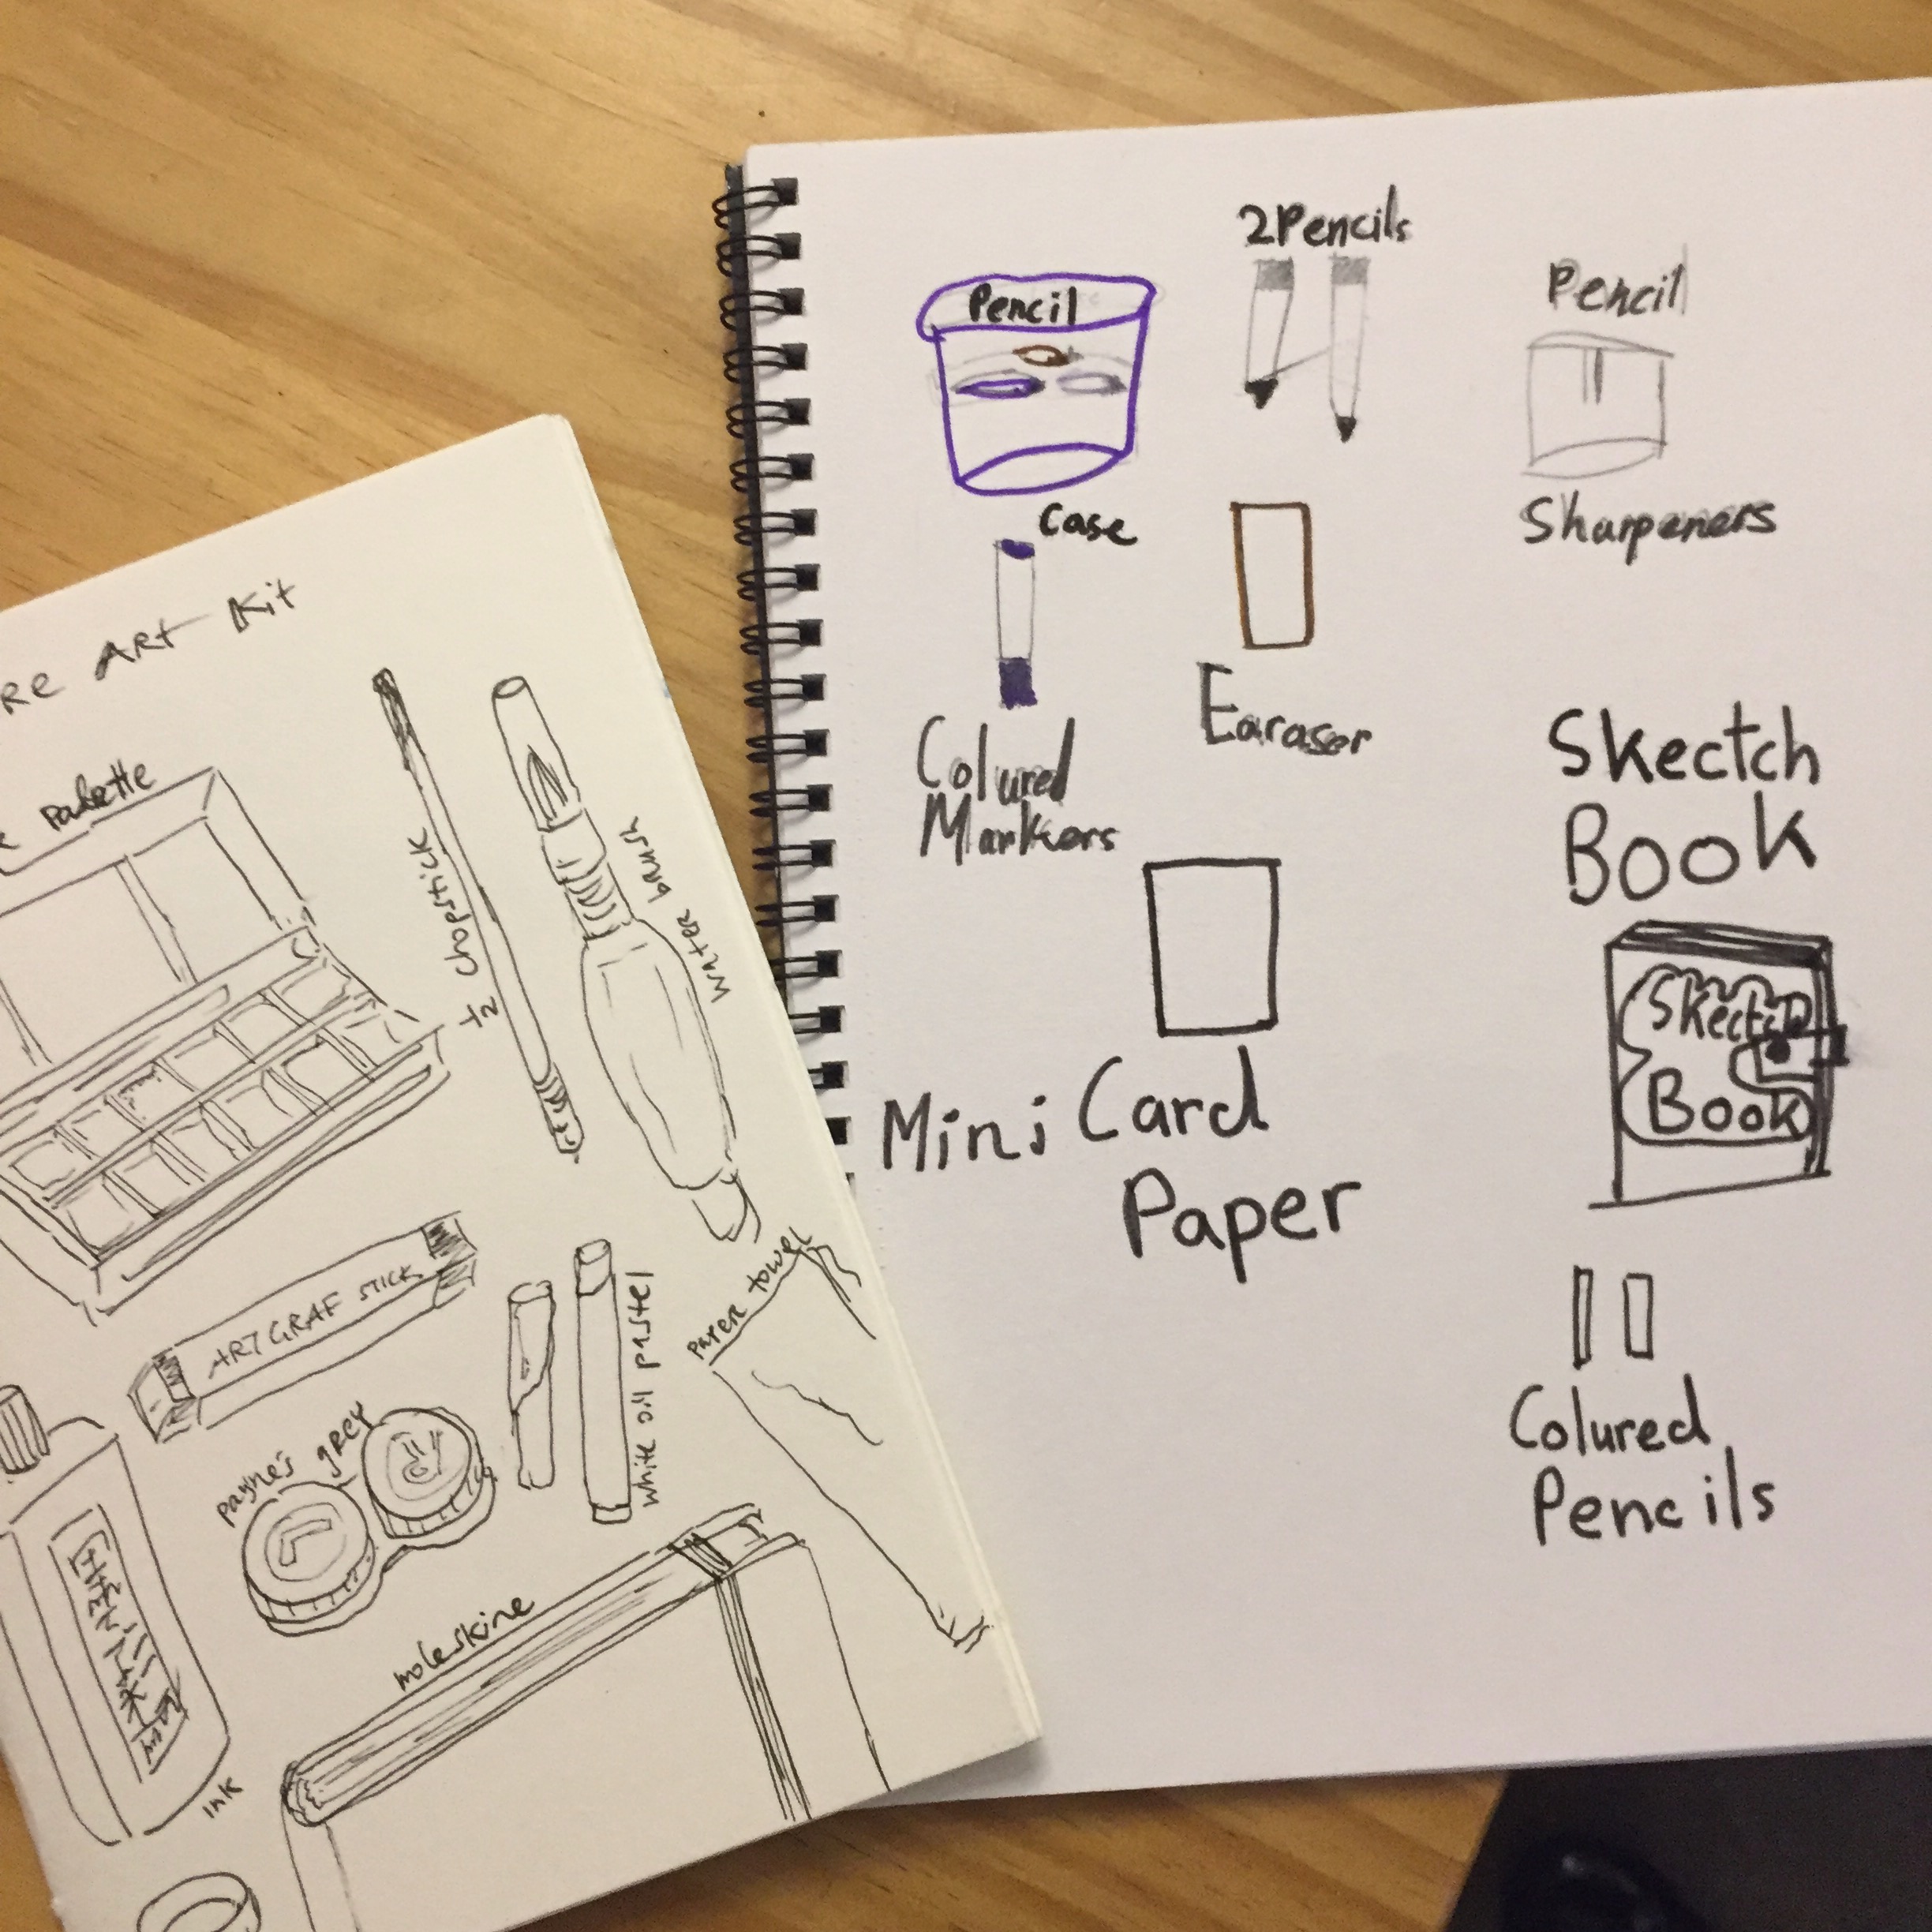 RE ART Kit
palette
1/2 chopstick
water brush
ARTGRAF STICK
payne's grey
white oil pastel
paper towel
moleskine
ink
2 Pencils
Pencil
Case
Pencil
Sharpeners
Colured
Markers
Earaser
Skectch
Book
Skectch
Book
Mini Card
Paper
Colured
Pencils